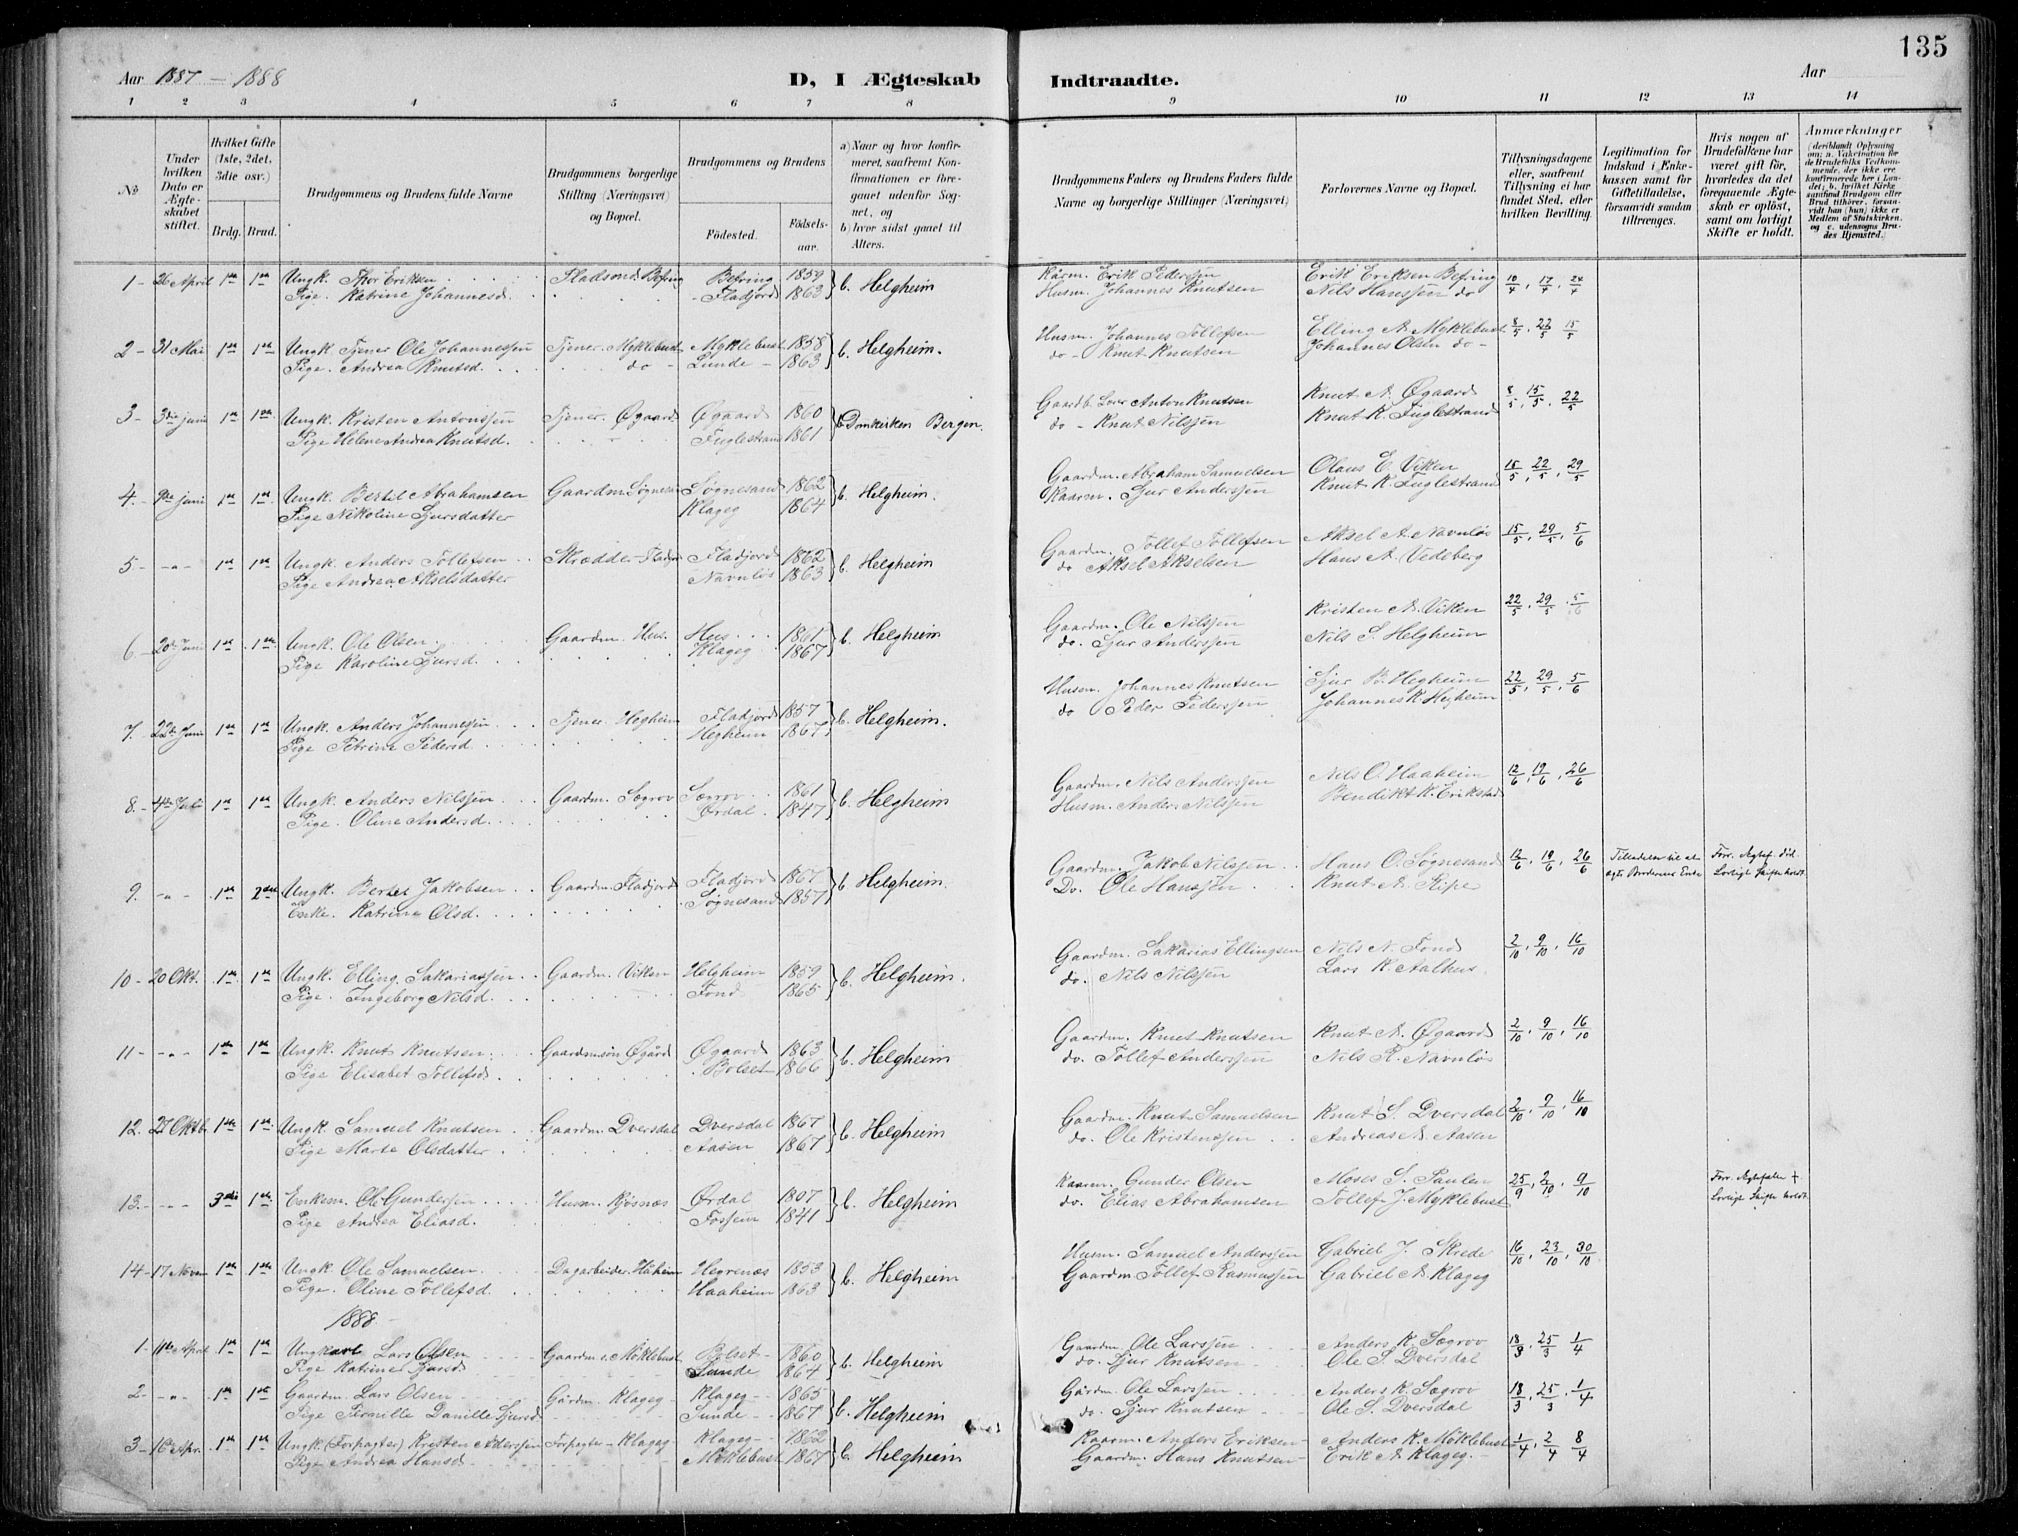 135
Aar 1887 – 1888
D, I Ægteskab Indtraadte.
Aar
1 2 3 4 5 6 7 8 9 10 11 12 13 14
No
Under hvilken Dato er Ægteskabet stiftet.
Hvilket Gifte (1ste, 2det, 3die osv.)
Brdg. Brud.
Brudgommens og Brudens fulde Navne
Brudgommens borgerlige Stilling (Næringsvei) og Bopæl.
Brudgommens og Brudens
Fødested. Fødselsaar.
a) Naar og hvor konfirmeret, saafremt Konfirmationen er foregaaet udenfor Sognet, og
b) hvor sidst gaaet til Alters.
Brudgommens Faders og Brudens Faders fulde Navne og borgerlige Stillinger (Næringsvei)
Forlovernes Navne og Bopæl.
Tillysningsdagene eller, saafremt Tillysning ei har fundet Sted, efter hvilken Bevilling.
Legitimation for Indskud i Enkekassen samt for Giftetilladelse, forsaavidt saadan tiltrænges.
Hvis nogen af Brudefolkene har været gift før, hvorledes da det foregaaende Ægteskab er opløst, samt om lovligt Skifte er holdt.
Anmærkninger (deriblandt Oplysning om: a. Vakcination for de Brudefolks Vedkommende, der ikke ere konfirmerede her i Landet; b. hvilket Kirkesamfund Brudgom eller Brud tilhører, forsaavidt han (hun) ikke er Medlem af Statskirken, og c. udensogns Brudes Hjemsted.)
1 - 26 April 1ste 1ste Ungk. Thor Eriksen Pladsmd. Befring Befring 1859 b. Helgheim Kårm. Erik Pedersen Erik Eriksen Befring 10/4, 17/4, 24/4
Pige. Katrine Johannesd. Fladjord 1863 Husm. Johannes Knutsen Nils Hanssen do
2 - 31 Mai 1ste 1ste Ungk. Tjener Ole Johannessen Tjener. Myklebust Myklebust 1858 b. Helgheim. Husm. Johannes Tollefsen Elling A. Myklebust 8/5, 22/5, 15/5
Pige. Andrea Knutsd. do - Lunde - 1863 do - Knut Knutsen Johannes Olsen do -
3 - 3die Juni 1ste 1ste Ungk. Kristen Antonssen Tjener. Øgaard Øgaard 1860 b. Domkirken Bergen. Gaardb. Anton Knutsen Knut A. Øgaard 8/5, 15/5, 22/5
Pige Helene Andrea Knutsd. Fuglestrand 1861 do - Knut Nilssen Knut K. Fuglestrand
4. - 9de Juni 1ste 1ste Ungk. Bertil Abrahamsen Gaardm. Søgnesand Søgnesand 1862 b. Helgheim. Gaardm. Abraham Samuelsen Olaus E. Viken 15/5, 22/5, 29/5
Pige Nikoline Sjursdatter Klageg 1864 Kaarm. Sjur Anderssen Knut K. Fuglestrand
5 - - " - 1ste 1ste Ungk. Anders Tollefsen Skrædder - Fladjord Fladjord 1862 b. Helgheim Gaardm. Tollef Tollefsen Aksel A. Navnløs 15/5, 29/5, 5/6
Pige Andrea Akselsdatter Navnløs 1863 do Aksel Akselsen Hans A. Vedeberg
6. - 20de Juni 1ste 1ste Ungk. Ole Olsen Gaardm. Hus. Hus 1861 b. Helgheim Gaardm. Ole Nilssen Kristen A. Viken 22/5, 29/5, 5/6
Pige Karoline Sjursd. Klageg 1867 do. Sjur Anderssen Nils S. Helgheim
7. - 22de Juni 1ste 1ste Ungk. Anders Johannessen Tjener. Hegheim Fladjord 1857 b. Helgheim. Husm. Johannes Knutsen Sjur B. Hegheim 22/5, 29/5, 5/6
Pige Petrine Pedersd. Hegheim 1867 do Peder Pederssen Johannes K. Hegheim
8. - 4de Juli 1ste 1ste Ungk. Anders Nilssen Gaardm. Sægrov Sægrov 1861 b. Helgheim Gaardm. Nils Anderssen Nils O. Haaheim 12/6, 19/6, 26/6
Pige. Oline Andersd. Ørdal 1847 Husm. Anders Nilssen Bendikt K. Erikstad
9. - " - 1ste 2den Ungk. Bertel Jakobsen Gaardm. Fladjord Fladjord 1867 b. Helgheim. Gaardm. Jakob Nilssen Hans O. Søgnesand 12/6, 19/6, 26/6 Tilladelse til at ægte Broderens Enke Forr. Ægtef. død. Lovligt Skifte holdt.
Enke. Katrine Olsd. Søgnesand 1857 Do. Ole Hanssen Knut A. Ripe
10 - 20 Okt. 1ste 1ste Ungk. Elling Sakariassen Gaardm. Viken Helgheim 1859 b. Helgheim. Gaardm. Sakarias Ellingsen Nils N. Fond 2/10, 9/10, 16/10
Pige. Ingeborg Nilsd. Fond 1865 do. Nils Nilssen Lars K. Aalhus.
11 - - " - 1ste 1ste Ungk. Knut Knutsen Gaardmsøn Øgård Øgaard 1863 b. Helgheim Gaardm. Knut Knutsen Knut A. Øgaard 2/10, 9/10, 16/10
Pige Elisabet Tollefsd. Bolset 1866 do. Tollef Anderssen Nils R. Navnløs
12. 27 Oktb. 1ste 1ste Ungk. Samuel Knutsen Gaardm. Dversdal Dversdal 1867 b. Helgheim Gaardm. Knut Samuelsen Knut S. Dversdal 2/10, 9/10, 16/10
Pige Marte Olsdatter Aasen 1867 do. Ole Kristenssen Andreas A. Aasen
13. - " - 3die 1ste Enkem. Ole Gundersen Husm. Kjøsnæs Ørdal 1807 b. Helgheim Kaarm. Gunder Olsen Moses S. Paulen 25/9, 2/10, 9/10 Forr. Ægtefælle † Lovligt Skifte holdt
Pige Andrea Eliasd. Fossum 1841 do. Elias Abrahamsen Tollef J. Myklebust
14 - 17 Novm 1ste 1ste Ungk. Ole Samuelsen Dagarbeider. Håheim Hegrenæs 1853 b. Helgheim Husm. Samuel Anderssen Gabriel J. Skrede 16/10, 23/10, 30/10
Pige. Oline Tollefsd. Haaheim 1863 Gaardm. Tollef Rasmussen Gabriel A. Klageg
1888
1 - 11te April 1ste 1ste Ungkarl Lars Olsen Gaardm. s. Møklebust Bolset 1860 b. Helgheim Gaardm. Ole Larssen Anders K. Sægrov 18/3, 25/3, 1/4
Pige Katrine Sjursd Sunde 1864 do. Sjur Knutsen Ole S. Dversdal
2 - - " - 1ste 1ste Gaardm. Lars Olsen Gårdm. Klageg Klageg 1865 b. Helgheim Gårdm. Ole Larssen Anders K. Sægrov 18/3, 25/3, 1/4
Pige Pernille Danille Sjursd Sunde 1867 do. Sjur Knutsen Ole S. Dversdal
3 - 16de Apr. 1ste 1ste Ungk. (Forpagter) Kristen Anderssen Forpagter - Klageg Klageg 1862 b. Helgheim Kaarm. Anders Eriksen Anders K. Møklebust 1/4, 2/4, 8/4
Pige Andrea Hansd Møklebust 1867 Gaardm. Hans Knutsen Erik A. Klageg.